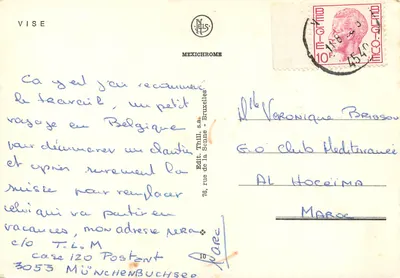 VISE
MEXICHROME
Edit. Thill, s.a.
76, rue de la Senne - Bruxelles
BELGIE BELGIQUE
10F
4540
Ca y est j'ai recommencé
le travail, un petit
voyage en Belgique
pour démarrer un chantier
et après surement la
suisse pour remplacer
celui qui va partir en
vacances, mon adresse sera
c/o T.L.M
case 120 Postent
3053 MÜNCHENBUCHSEE
Marc
Mlle VERONIQUE
C/O Club Mediterranée
AL HOCEÏMA
MAROC